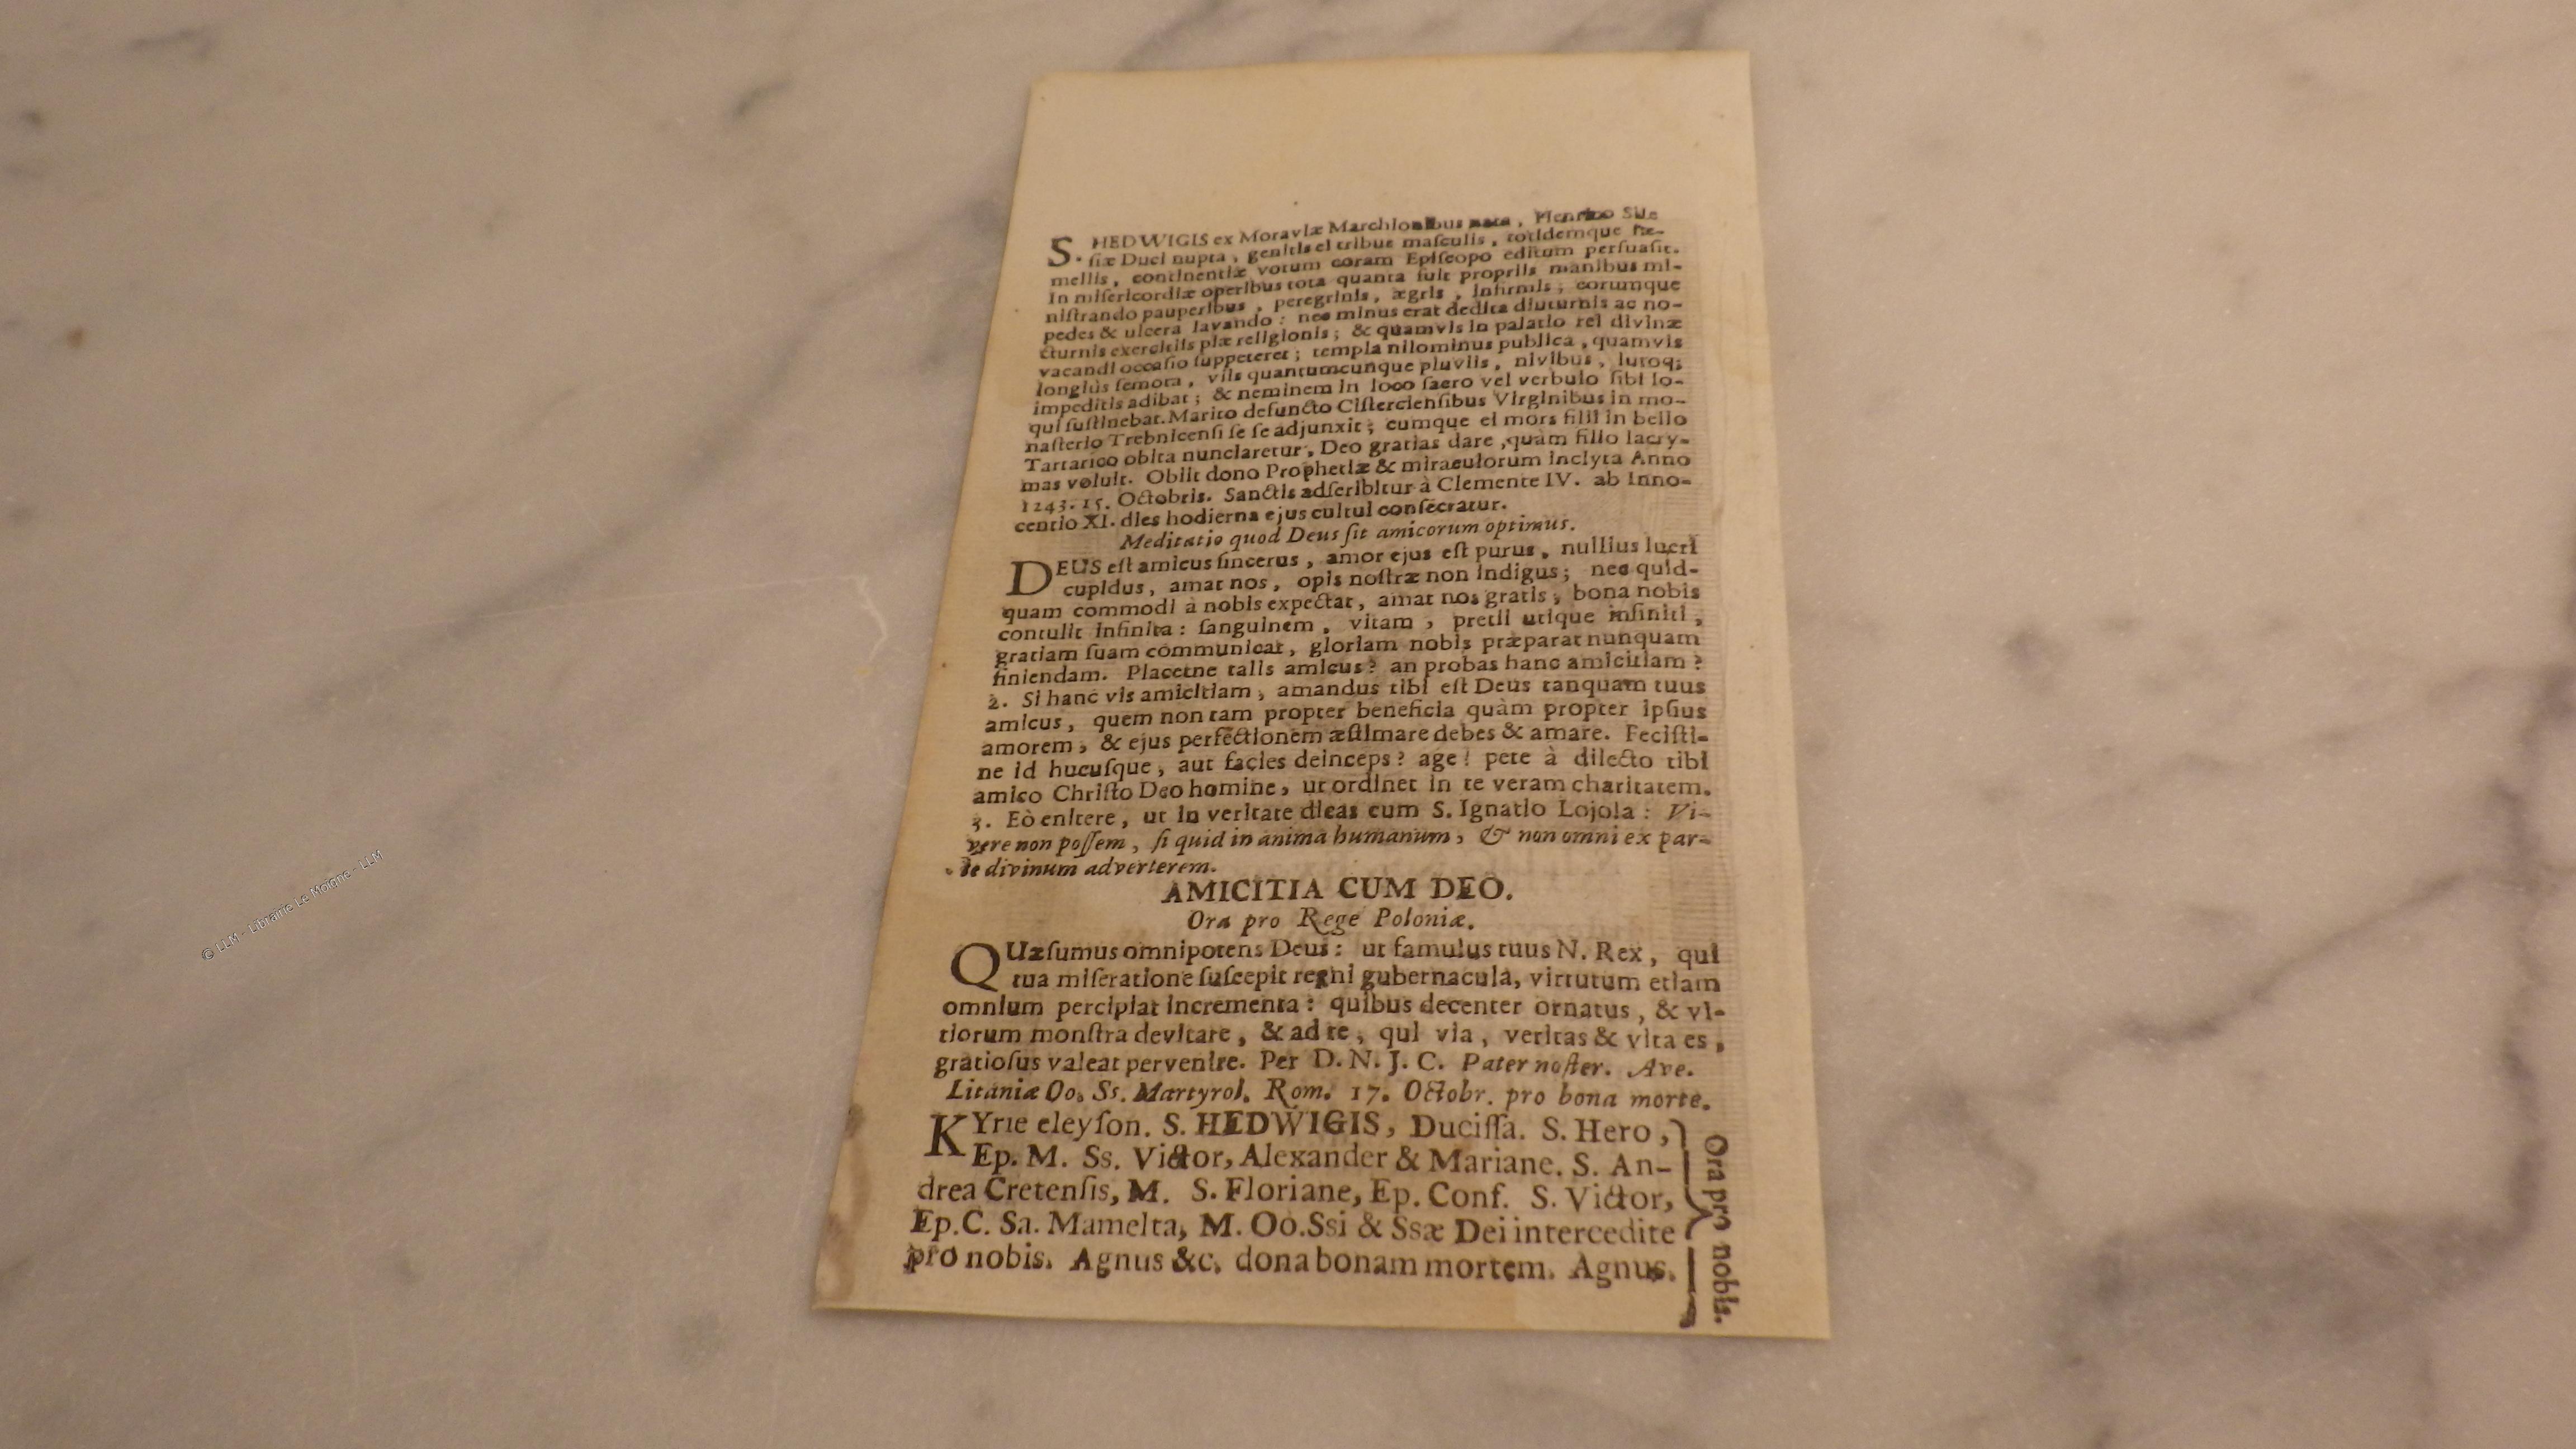 S. HEDWIGIS ex Moraviæ Marchionibus nata, Henrico Sile
siæ Duci nupta, genitis ei tribus masculis, totidemque fæ-
mellis, continentiæ votum coram Episcopo editum persuasit.
In misericordiæ operibus tota quanta fuit propriis manibus mi-
nistrando pauperibus, peregrinis, ægris, infirmis; eorumque
pedes & ulcera lavando: nec minus erat dedita diuturnis ac no-
cturnis exercitiis piæ religionis; & quamvis in palatio rei divinæ
vacandi occasio suppeteret; templa nilominus publica, quamvis
longiùs semota, viis quantumcunque pluviis, nivibus, lutoq;
impeditis adibat; & neminem in loco sacro vel verbulo sibi lo-
qui sustinebat. Marito defuncto Cisterciensibus Virginibus in mo-
nasterio Trebnicensi se se adjunxit; cumque ei mors filii in bello
Tartarico obita nunciaretur, Deo gratias dare, quàm filio lacry-
mas voluit. Obiit dono Prophetiæ & miraculorum inclyta Anno
1243. 15. Octobris. Sanctis adscribitur à Clemente IV. ab Inno-
centio XI. dies hodierna ejus cultui consecratur.
Meditatio quod Deus sit amicorum optimus.
DEUS est amicus sincerus, amor ejus est purus, nullius lucri
cupidus, amat nos, opis nostræ non indigus; nec quid-
quam commodi à nobis expectat, amat nos gratis, bona nobis
contulit infinita: sanguinem, vitam, pretii utique infiniti,
gratiam suam communicat, gloriam nobis præparat nunquam
finiendam. Placetne talis amicus? an probas hanc amicitiam?
2. Si hanc vis amicitiam, amandus tibi est Deus tanquam tuus
amicus, quem non tam propter beneficia quàm propter ipsius
amorem, & ejus perfectionem æstimare debes & amare. Fecisti-
ne id hucusque, aut facies deinceps? age! pete à dilecto tibi
amico Christo Deo homine, ut ordinet in te veram charitatem.
3. Eò enitere, ut in veritate dicas cum S. Ignatio Lojola: Vi-
vere non possem, si quid in anima humanum, & non omni ex par-
te divinum adverterem.
AMICITIA CUM DEO.
Ora pro Rege Poloniæ.
QUæsumus omnipotens Deus: ut famulus tuus N. Rex, qui
tua miseratione suscepit regni gubernacula, virtutum etiam
omnium percipiat incrementa: quibus decenter ornatus, & vi-
tiorum monstra devitare, & ad te, qui via, veritas & vita es,
gratiosus valeat pervenire. Per D. N. J. C. Pater noster. Ave.
Litaniæ Oo. Ss. Martyrol. Rom. 17. Octobr. pro bona morte.
KYrie eleyson. S. HEDWIGIS, Ducissa. S. Hero,
Ep. M. Ss. Victor, Alexander & Mariane. S. An-
drea Cretensis, M. S. Floriane, Ep. Conf. S. Victor,
Ep. C. Sa. Mamelta, M. Oo. Ssi & Ssæ Dei intercedite
pro nobis. Agnus &c. dona bonam mortem. Agnus.
Ora pro nobis.
© LLM - Librairie Le Moigne - LLM